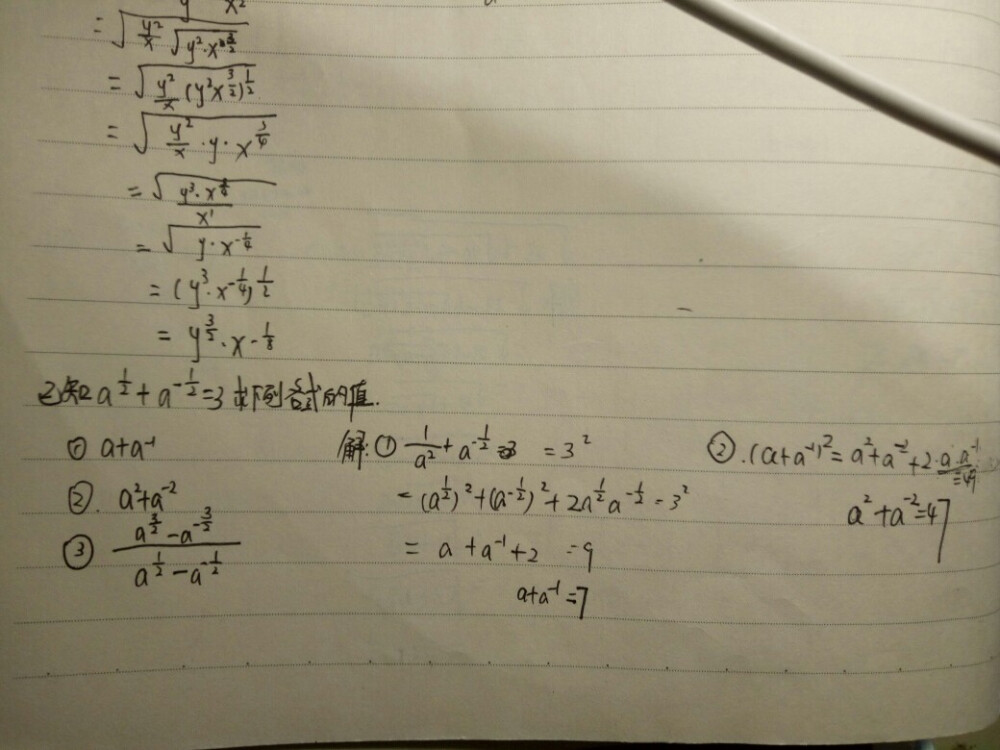 = √(y²/x √(y²·x^(3/2)))
= √(y²/x (y²x^(3/2))^(1/2))
= √(y²/x · y · x^(3/4))
= √(y³·x^(3/4)/x¹)
= √(y·x^(-1/4))
= (y³·x^(-1/4))^(1/2)
= y^(3/2)·x^(-1/8)
已知 a^(1/2) + a^(-1/2) = 3 求下列各式的值.
① a+a⁻¹
② . a²+a⁻²
③ (a^(3/2) − a^(-3/2))/(a^(1/2) − a^(-1/2))
解: ① 1/a² + a^(-1/2) = 3²
= (a^(1/2))² + (a^(-1/2))² + 2a^(1/2)a^(-1/2) = 3²
= a + a⁻¹ + 2 = 9
a+a⁻¹ = 7
② . (a+a⁻¹)² = a²+a⁻²+2·a·a⁻¹ = 49
a²+a⁻² = 47